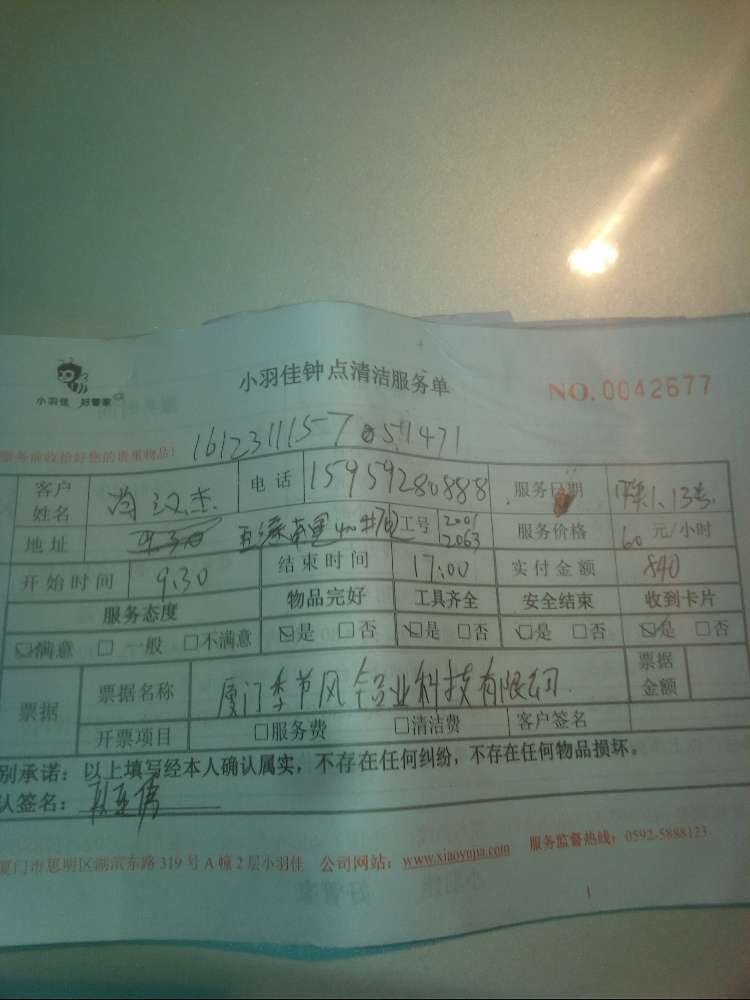 小羽佳 好管家
小羽佳钟点清洁服务单
NO.0042677
服务前收拾好您的贵重物品!
客户姓名 电话 15959280888 服务日期
地址 工号 2001 2063 服务价格 60 元/小时
开始时间 9:30 结束时间 17:00 实付金额 840
服务态度 物品完好 工具齐全 安全结束 收到卡片
☑满意 □一般 □不满意 ☑是 □否 ☑是 □否 ☑是 □否 ☑是 □否
票据 票据名称 厦门季节风铝业科技有限公司 票据金额
开票项目 □服务费 □清洁费 客户签名
别承诺：以上填写经本人确认属实，不存在任何纠纷，不存在任何物品损坏。
认签名：
厦门市思明区湖滨东路 319 号 A 幢 2 层小羽佳 公司网站：www.xiaoyujia.com 服务监督热线：0592-5888123